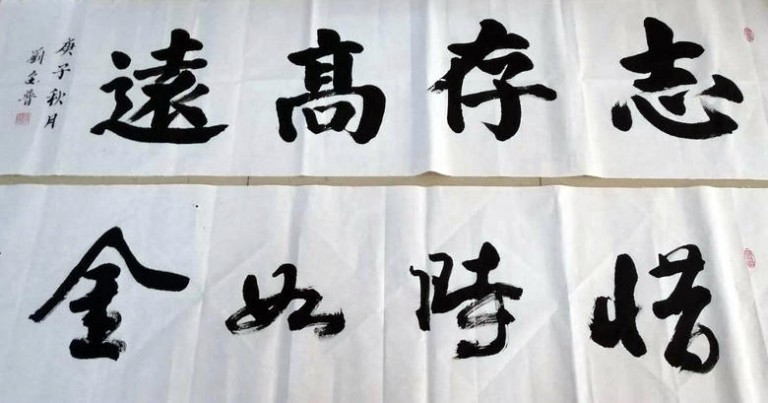 志存高遠
庚子秋月
劉金魯
惜時如金